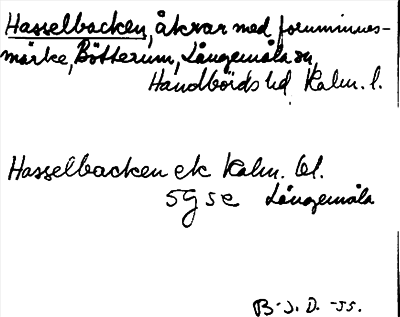 Hasselbacken, åkrar med fornminnes-
märke, Bötterum, Långemåla sn,
Handbörds hd Kalm. l.
Hasselbacken ek Kalm. bl.
5g se Långemåla
B-J. D. -55.